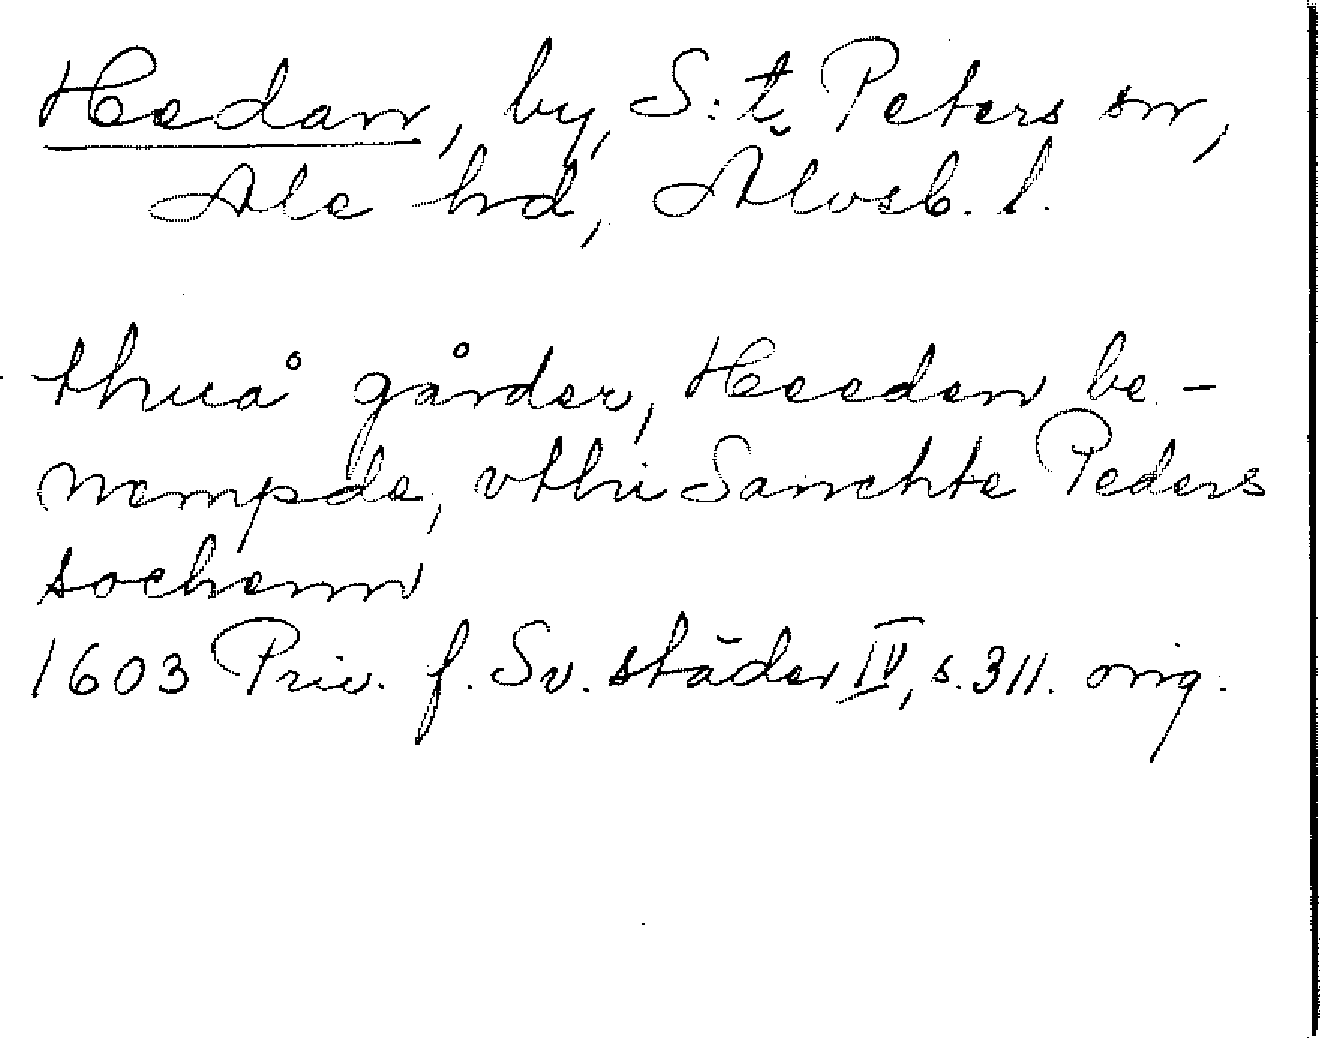 Heedan, by, S:t Peters sn,
Ale hd, Älvsb. l.
thuå gårder, Heeden be-
nempde, vthi Sanchte Peders
sochenn
1603 Priv. f. Sv. städer IV, s. 311. orig.